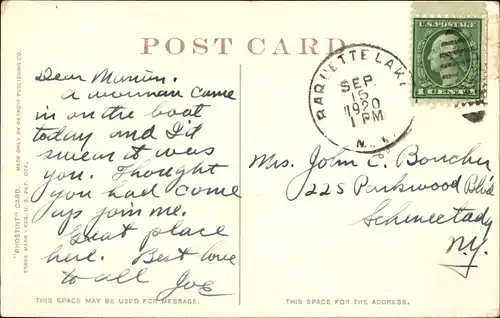 POST CARD
U.S. POSTAGE
1 CENT 1
RAQUETTE LAKE
SEP
15
1920
1 PM
N.Y.
"PHOSTINT" CARD. MADE ONLY BY DETROIT PUBLISHING CO.
TRADE MARK - REG. U.S. PAT. OFF.
Dear Marion.
A woman came
in on the boat
today and I'd
swear it was
you. Thought
you had come
up join me.
Great place
here. Best love
to all Joe
Mrs. John C. Boucher
225 Parkwood Blvd
Schenectady
N.Y.
THIS SPACE MAY BE USED FOR MESSAGE.
THIS SPACE IS FOR THE ADDRESS.